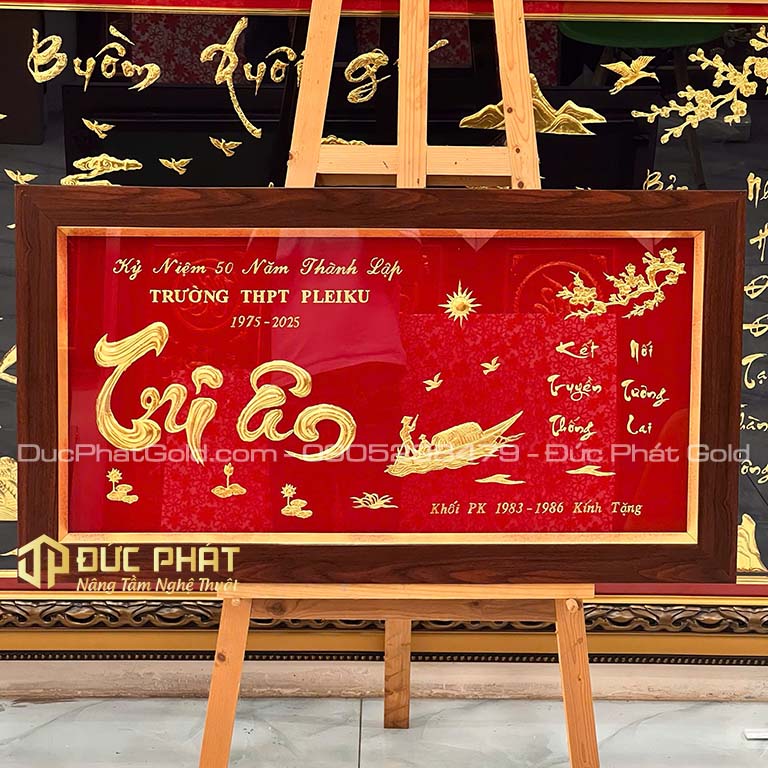 Buồm Xuôi gi
Kỷ Niệm 50 Năm Thành Lập
TRƯỜNG THPT PLEIKU
1975-2025
Tri Ân
Kết Nối
Truyền Tương
Thống Lai
DucPhatGold.com - Đức Phát Gold
Khối PK 1983-1986 Kính Tặng
ĐỨC PHÁT
Nâng Tầm Nghệ Thuật